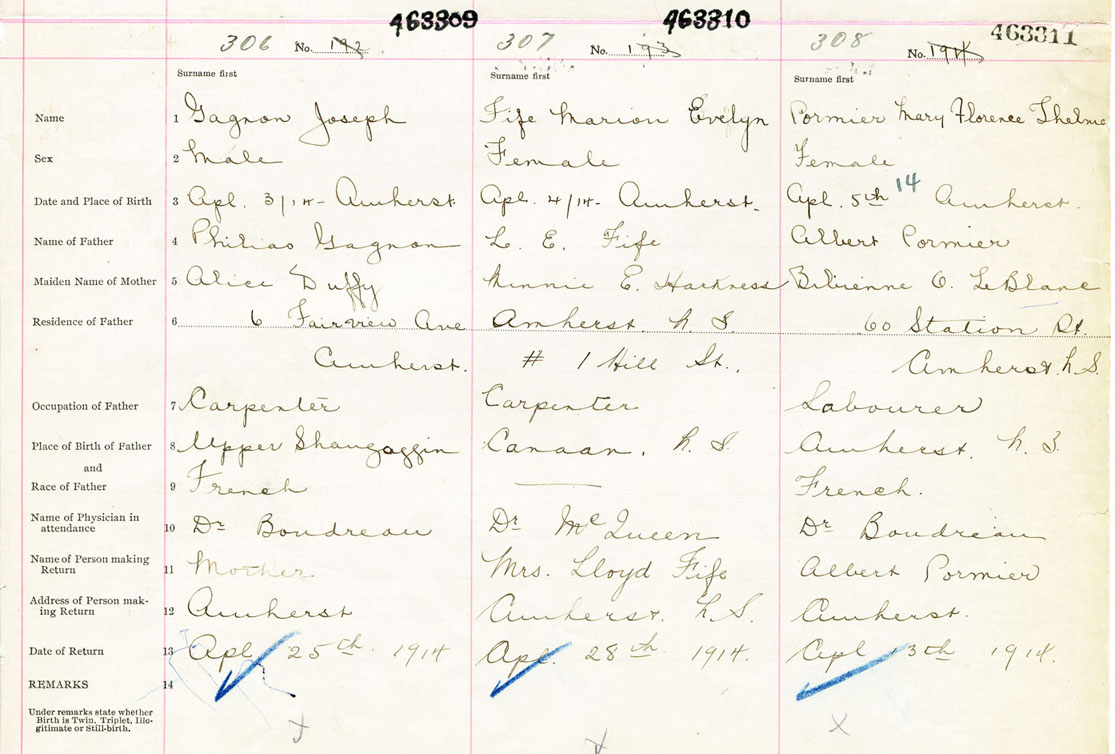 463309 463310 463311
306 No. 192 307 No. 193 308 No. 194
Surname first Surname first Surname first
Name 1 Gagnon Joseph Fife Marion Evelyn Pormier Mary Florence Thelma
Sex 2 Male Female Female
Date and Place of Birth 3 Apl. 3/14 - Amherst Apl. 4/14 - Amherst. Apl. 5th 14 Amherst.
Name of Father 4 Philias Gagnon L. E. Fife Albert Pormier
Maiden Name of Mother 5 Alice Duffy Minnie E. Harkness Bibienne O. LeBlanc
Residence of Father 6 6 Fairview Ave Amherst N S. 60 Station St.
Amherst. # 1 Hill St., Amherst. N.S.
Occupation of Father 7 Carpenter Carpenter Labourer
Place of Birth of Father 8 Upper Shangoggin Canaan, N. S. Amherst, N S.
and
Race of Father 9 French — French.
Name of Physician in
attendance 10 Dr Boudreau Dr McQueen Dr Boudreau
Name of Person making
Return 11 Mother Mrs. Lloyd Fife Albert Pormier
Address of Person mak-
ing Return 12 Amherst Amherst, N.S. Amherst.
Date of Return 13 Apl 25th 1914 Apl. 28th 1914. Apl 13th 1914.
REMARKS 14
Under remarks state whether
Birth is Twin, Triplet, Ille-
gitimate or Still-birth.